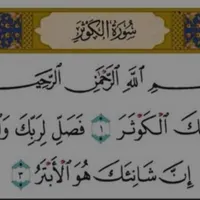 سُورَةُ الكَوْثَرِ
ـمِ اللَّهِ الرَّحْمَٰنِ الرَّحِيـ
ـكَ الْكَوْثَرَ ١ فَصَلِّ لِرَبِّكَ وَا
إِنَّ شَانِئَكَ هُوَ الْأَبْتَرُ ٣